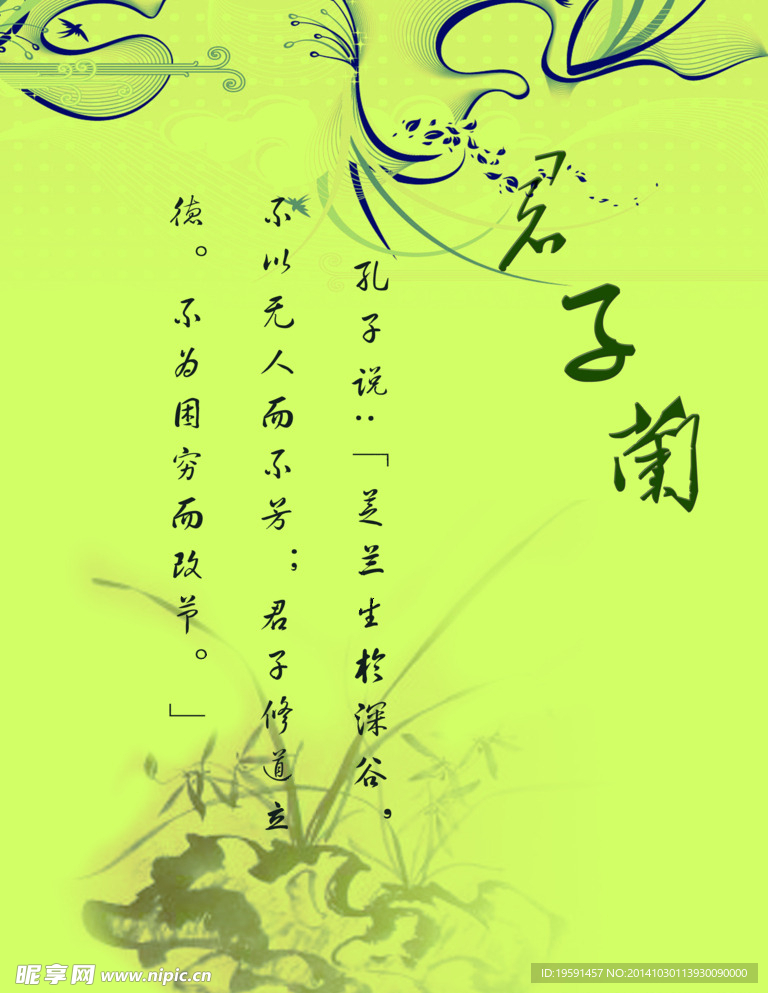 君子蘭
孔子说：「芝兰生於深谷，
不以无人而不芳；君子修道立
德。不为困穷而改节。」
昵享网 www.nipic.cn
ID:19591457 NO:20141030113930090000